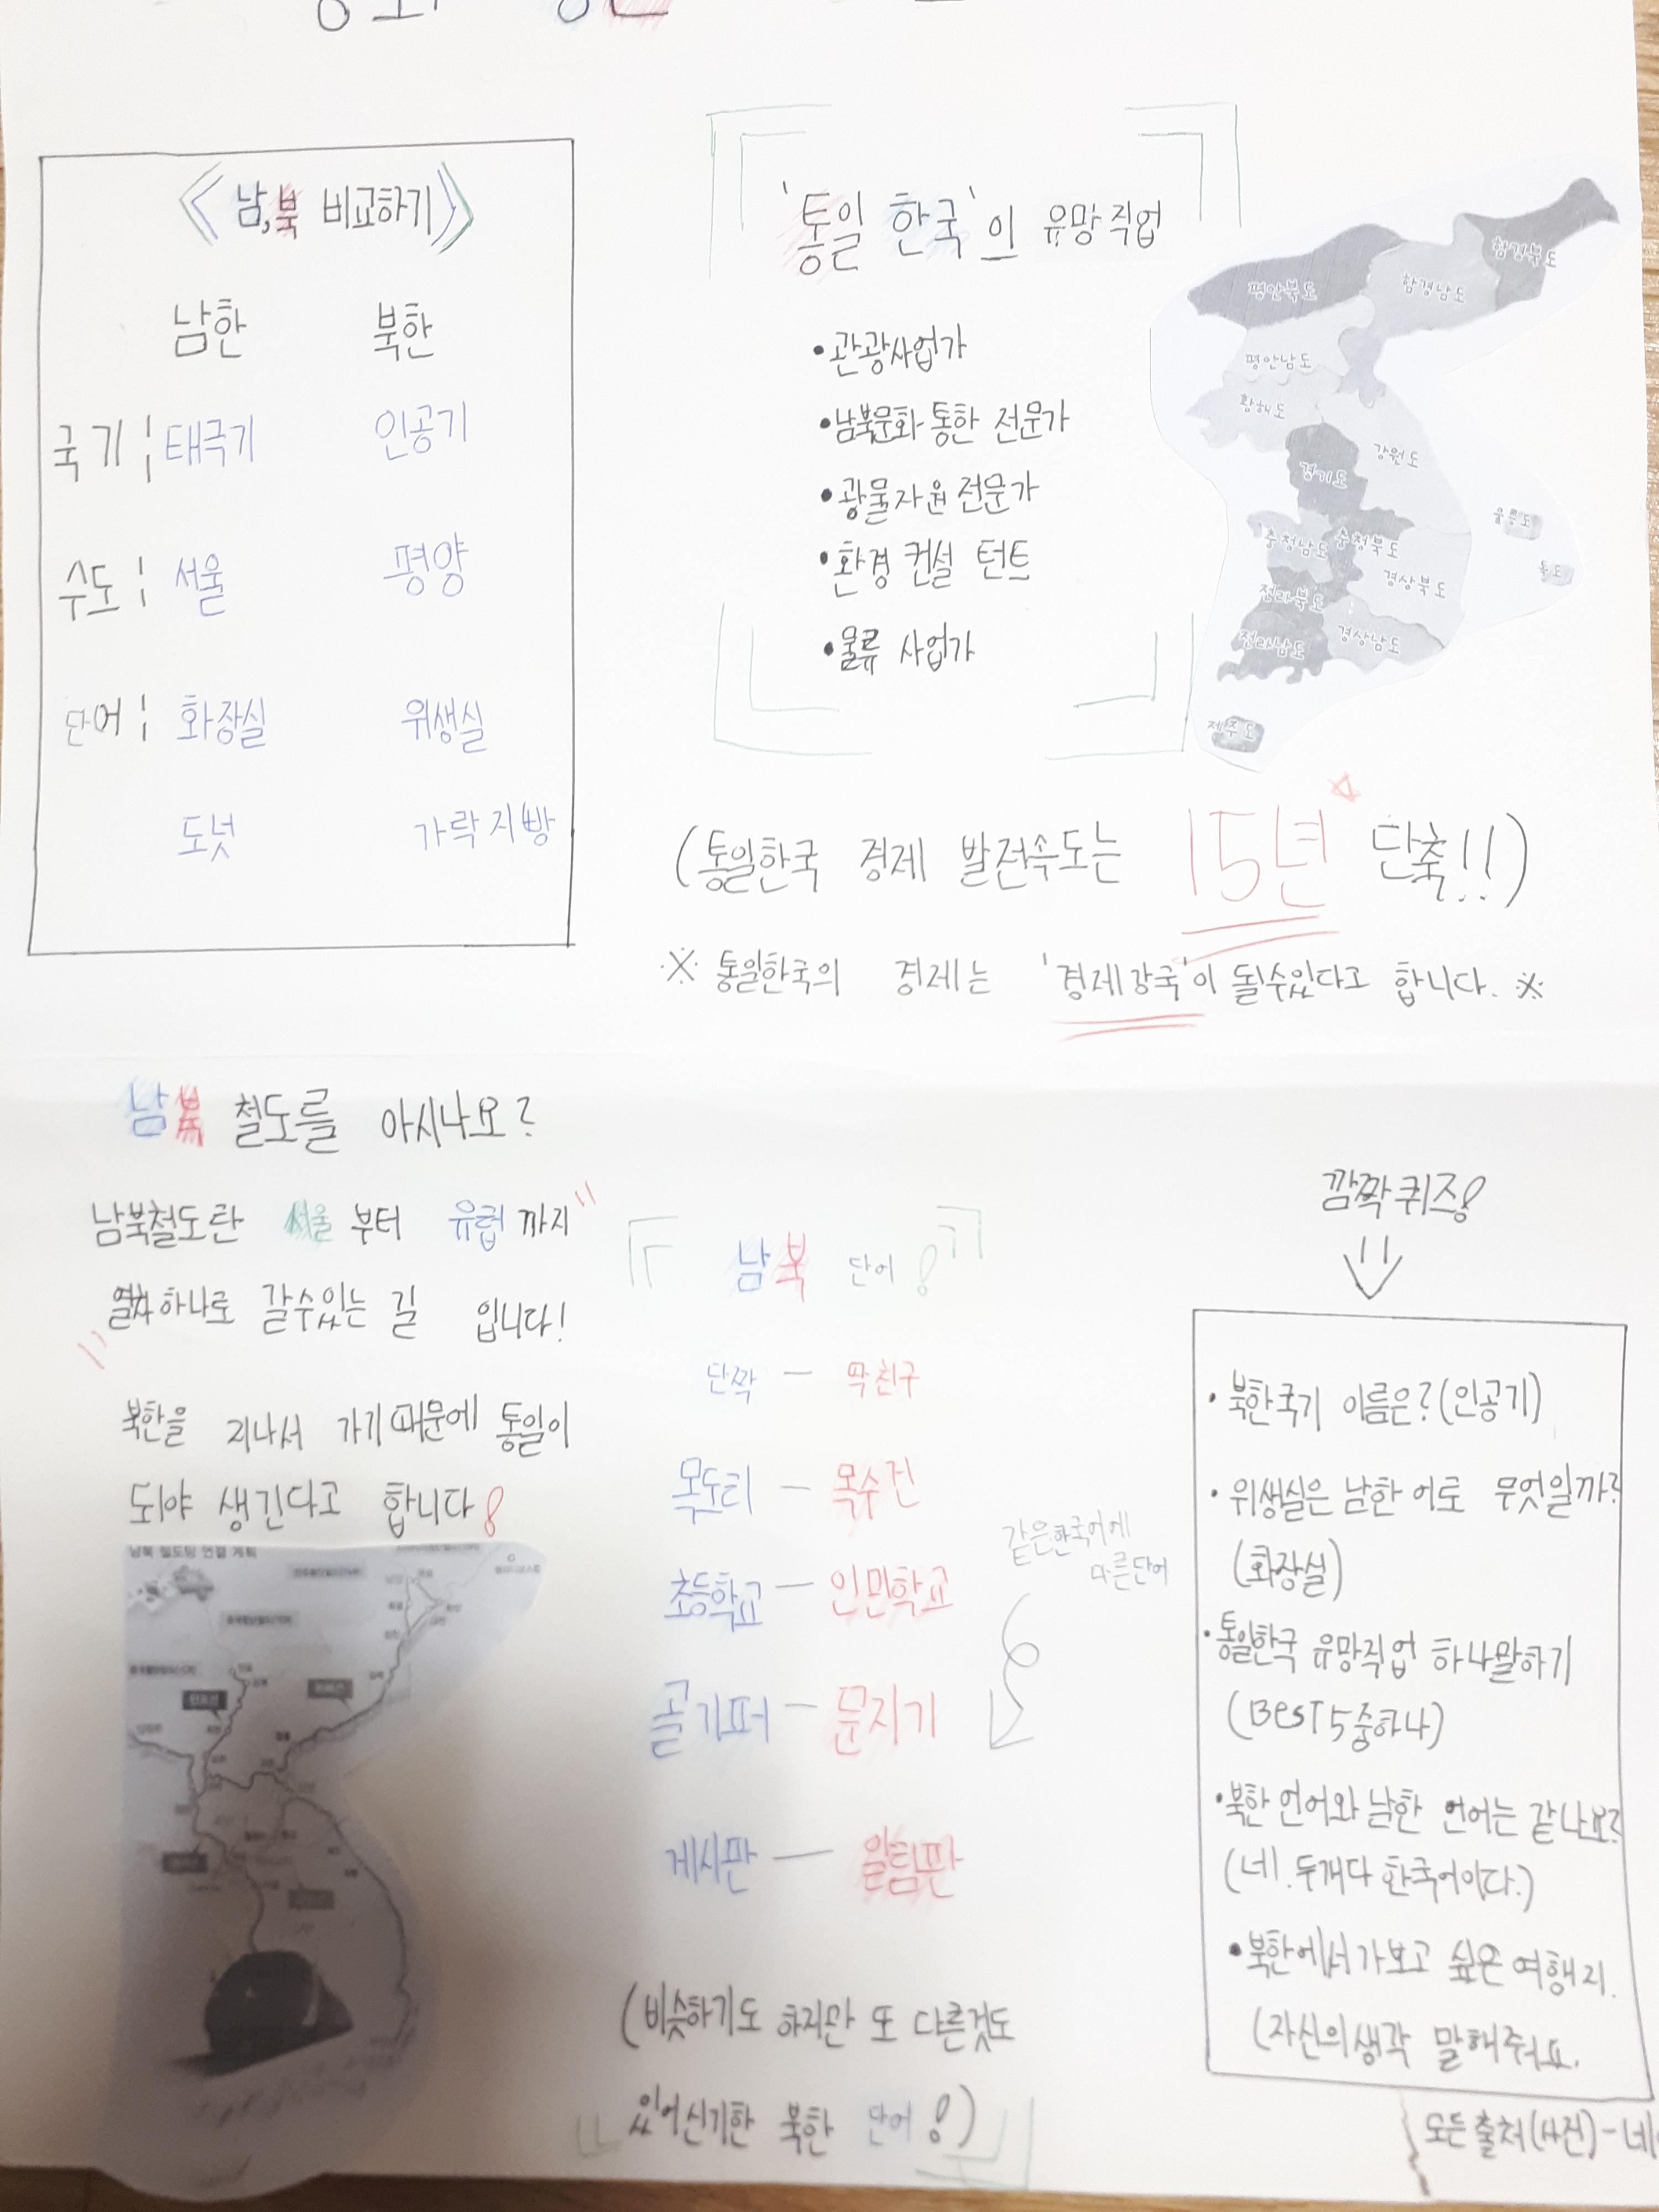 《남,북 비교하기》
남한 북한
국기 ¦ 태극기 인공기
수도 ¦ 서울 평양
단어 ¦ 화장실 위생실
도넛 가락지빵
'통일 한국'의 유망직업
•관광사업가
•남북문화 통한 전문가
•광물자원 전문가
•환경 컨설 턴트
•물류 사업가
함경북도
평안북도
함경남도
평안남도
황해도
강원도
경기도
울릉도
충청남도
충청북도
독도
경상북도
전라북도
전라남도
경상남도
제주도
(통일한국 경제 발전속도는 15년 단축!!)
※ 통일한국의 경제는 '경제강국'이 될수있다고 합니다. ※
남북 철도를 아시나요?
남북철도란 서울 부터 유럽 까지
열차 하나로 갈수있는 길 입니다!
북한을 지나서 가기 때문에 통일이
되야 생긴다고 합니다!
남북 철도망 연결 계획
남북 단어!
단짝 — 딱친구
목도리 — 목수건
초등학교 — 인민학교
골기퍼 — 문지기
게시판 — 알림판
같은한국어에
다른단어
(비슷하기도 하지만 또 다른것도
있어신기한 북한 단어!)
깜짝퀴즈!
• 북한국기 이름은?(인공기)
• 위생실은 남한 어로 무엇일까?
(화장실)
•통일한국 유망직업 하나말하기
(BEST 5중하나)
•북한 언어와 남한 언어는 같나요?
(네!.두개다 한국어이다.)
•북한에서가보고 싶은 여행지.
(자신의생각 말해주세요.
모든출처(사진)-네